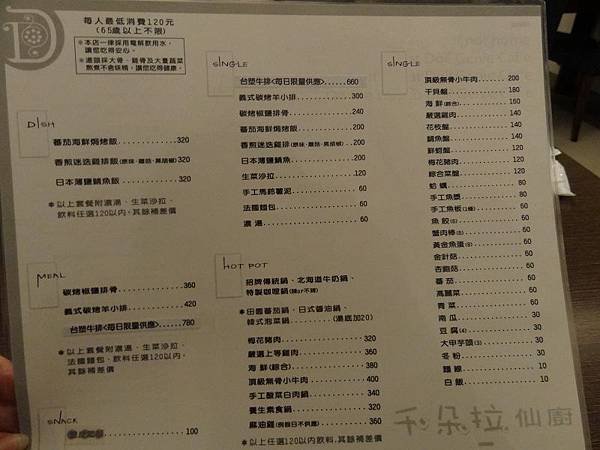 每人最低消費120元
(65歲以上不限)
※本店一律採用電解飲用水,
讓您吃得安心。
※湯頭採大骨、雞骨及大量蔬菜
熬煮不含味精,讓您吃得健康。
DISH
蕃茄海鮮焗烤飯............320
香煎迷迭雞排飯(原味、蘑菇、黑胡椒)...320
日本薄鹽鯖魚飯............320
※以上套餐附濃湯、生菜沙拉、
飲料任選120以內,其餘補差價
MEAL
碳烤椒鹽排骨............360
義式碳烤羊小排............420
台塑牛排<每日限量供應>......780
※以上套餐附濃湯、生菜沙拉、
法國麵包、飲料任選120以內,
其餘補差價
SNACK
............100
SINGLE
台塑牛排<每日限量供應>......660
義式碳烤羊小排............300
碳烤椒鹽排骨............240
蕃茄海鮮焗烤飯............200
香煎迷迭雞排(原味、蘑菇、黑胡椒)...200
日本薄鹽鯖魚............200
生菜沙拉............120
手工馬鈴薯泥............60
法國麵包............60
濃湯............60
HOT POT
招牌傳統鍋、北海道牛奶鍋、
特製咖哩鍋
※田園蕃茄鍋、日式番油鍋、
韓式泡菜鍋.........(湯底加20)
梅花豬肉............320
嚴選上等雞肉............360
海鮮(綜合)............380
頂級無骨小牛肉............400
手工酸菜白肉鍋............340
養生素食鍋............320
麻油雞(例假日不供應)......360
※以上任選120以內飲料,其餘補差價
SINGLE
頂級無骨小牛肉......200
干貝盤............160
海鮮(綜合)............180
嚴選雞肉............160
花枝盤............140
鯖魚盤............140
鮮蝦盤............140
梅花豬肉............120
綜合菜盤............120
蛤蠣............60
手工魚漿............80
手工魚板(1條)............60
魚餃(5)............60
蟹肉棒(5)............60
黃金魚蛋(5)............60
金針菇............60
杏鮑菇............60
蕃茄............60
高麗菜............60
青菜............60
南瓜............30
豆腐(4)............30
大甲芋頭(3)............30
冬粉............30
麵線............10
白飯............10
千朵拉仙廚